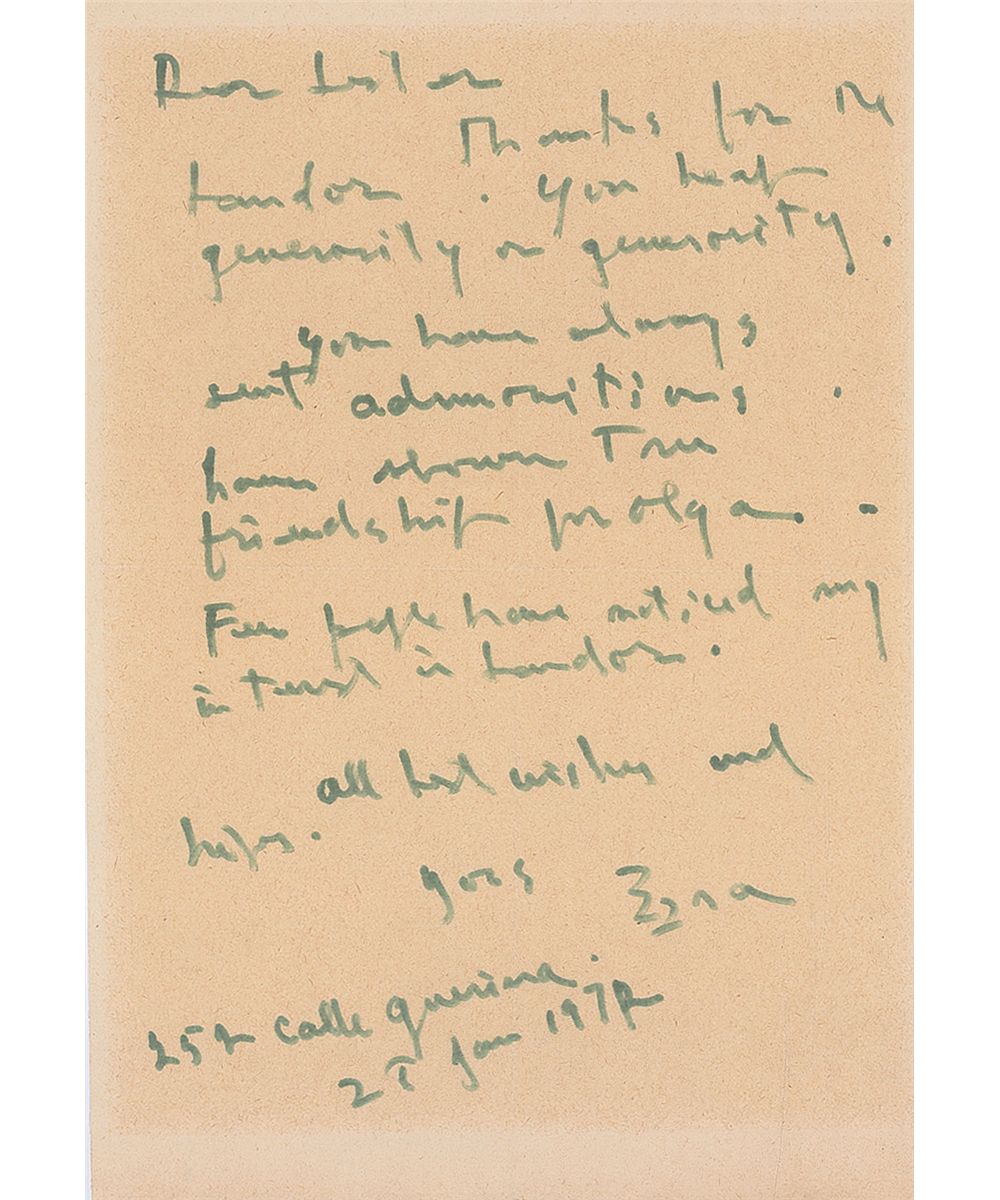 Dear Lester
Thanks for the
Landor . You heap
generosity on generosity.
You have always
sent admonitions .
have shown true
friendship for Olga. -
Few people have noticed my
interest in Landor.
all best wishes and
hopes.
yors Ezra
252 calle querina.
2 Jan 197